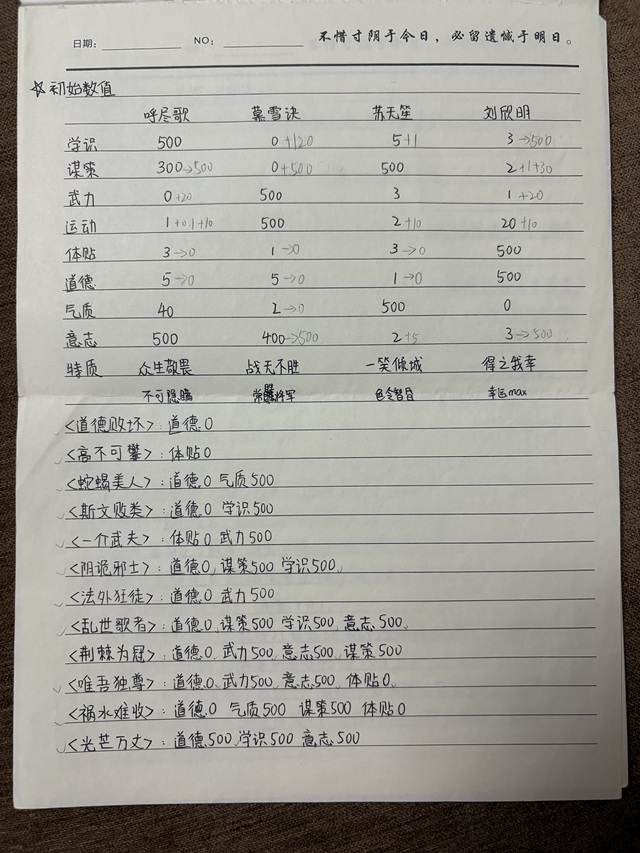 日期： NO： 不惜寸阴于今日，必留遗憾于明日。
☆初始数值
呼尽歌 慕雪诀 苏天笙 刘欣明
学识 500 0+120 5+1 3→500
谋策 300→500 0+500 500 2+1+30
武力 0+20 500 3 1+20
运动 1+0.1+10 500 2+10 20+10
体贴 3→0 1→0 3→0 500
道德 5→0 5→0 1→0 500
气质 40 2→0 500 0
意志 500 400→500 2+5 3→500
特质 众生敬畏 战无不胜 一笑倾城 得之我幸
不可隐瞒 常胜将军 色令智昏 幸运max
<道德败坏>：道德0
<高不可攀>：体贴0
<蛇蝎美人>：道德0 气质500
<斯文败类>：道德0 学识500
<一介武夫>：体贴0 武力500
<阴诡邪士>：道德0，谋策500 学识500，
<法外狂徒>：道德0 武力500
<乱世歌者>：道德0，谋策500 学识500，意志500，
<荆棘为冠>：道德0，武力500，意志500，谋策500
<唯吾独尊>：道德0，武力500，意志500，体贴0，
<祸水难收>：道德0 气质500 谋策500 体贴0
<光芒万丈>：道德500，学识500 意志500